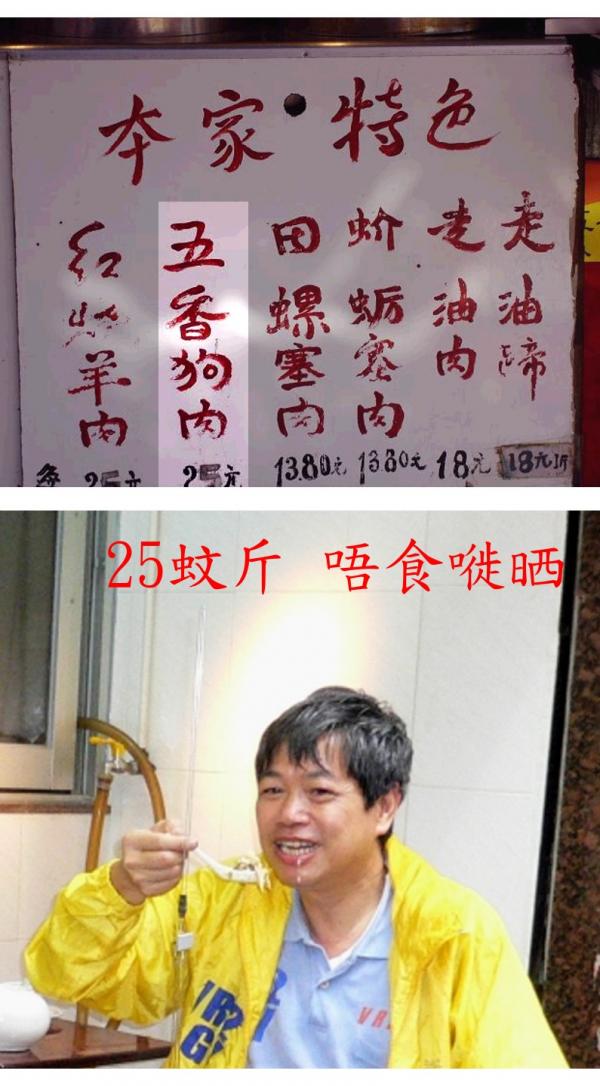 本家特色
走油蹄
18元斤
走油肉
18元
蚧蛎塞肉
13.80元
田螺塞肉
13.80元
五香狗肉
25元
红烧羊肉
25元
25蚊斤 唔食嘥晒